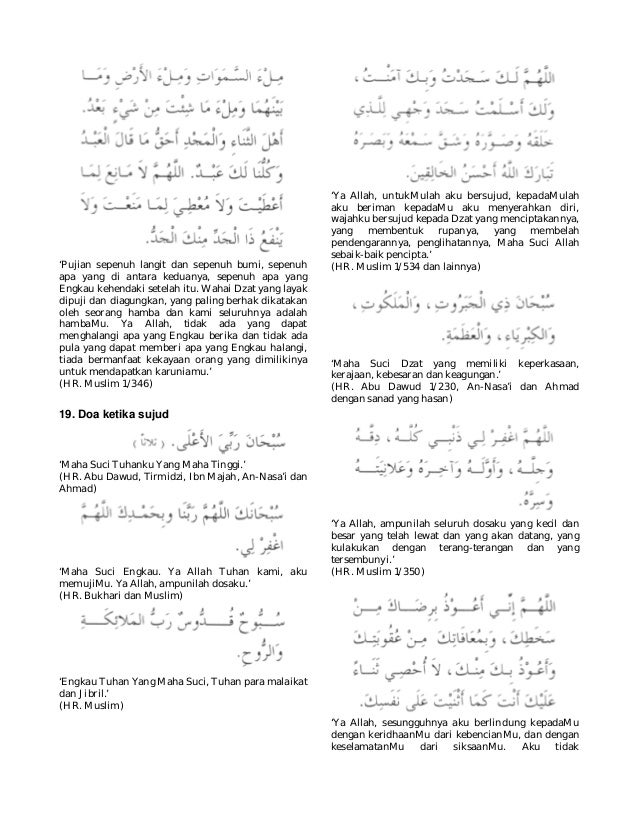 مِلْءَ السَّمَوَاتِ وَمِلْءَ الأَرْضِ وَمَا
بَيْنَهُمَا وَمِلْءَ مَا شِئْتَ مِنْ شَيْءٍ بَعْدُ.
أَهْلَ الثَّنَاءِ وَالْمَجْدِ أَحَقُّ مَا قَالَ الْعَبْدُ
وَكُلُّنَا لَكَ عَبْدٌ. اللَّهُمَّ لاَ مَانِعَ لِمَا
أَعْطَيْتَ وَلاَ مُعْطِيَ لِمَا مَنَعْتَ وَلاَ
يَنْفَعُ ذَا الْجَدِّ مِنْكَ الْجَدُّ.
‘Pujian sepenuh langit dan sepenuh bumi, sepenuh
apa yang di antara keduanya, sepenuh apa yang
Engkau kehendaki setelah itu. Wahai Dzat yang layak
dipuji dan diagungkan, yang paling berhak dikatakan
oleh seorang hamba dan kami seluruhnya adalah
hambaMu. Ya Allah, tidak ada yang dapat
menghalangi apa yang Engkau berika dan tidak ada
pula yang dapat memberi apa yang Engkau halangi,
tiada bermanfaat kekayaan orang yang dimilikinya
untuk mendapatkan karuniamu.’
(HR. Muslim 1/346)
19. Doa ketika sujud
سُبْحَانَ رَبِّيَ الأَعْلَى. (ثلاثاً)
‘Maha Suci Tuhanku Yang Maha Tinggi.’
(HR. Abu Dawud, Tirmidzi, Ibn Majah, An-Nasa’i dan
Ahmad)
سُبْحَانَكَ اللَّهُمَّ رَبَّنَا وبِحَمْدِكَ اللَّهُمَّ
اغْفِرْ لِي.
‘Maha Suci Engkau. Ya Allah Tuhan kami, aku
memujiMu. Ya Allah, ampunilah dosaku.’
(HR. Bukhari dan Muslim)
سُبُّوحٌ قُدُّوسٌ رَبُّ المَلاَئِكَةِ
وَالرُّوحِ.
‘Engkau Tuhan Yang Maha Suci, Tuhan para malaikat
dan Jibril.’
(HR. Muslim)
اللَّهُمَّ لَكَ سَجَدْتُ وَبِكَ آمَنْتُ،
وَلَكَ أَسْلَمْتُ سَجَدَ وَجْهِي لِلَّذِي
خَلَقَهُ وَصَوَّرَهُ وَشَقَّ سَمْعَهُ وَبَصَرَهُ
تَبَارَكَ اللَّهُ أَحْسَنُ الْخَالِقِينَ.
‘Ya Allah, untukMulah aku bersujud, kepadaMulah
aku beriman kepadaMu aku menyerahkan diri,
wajahku bersujud kepada Dzat yang menciptakannya,
yang membentuk rupanya, yang membelah
pendengarannya, penglihatannya, Maha Suci Allah
sebaik-baik pencipta.’
(HR. Muslim 1/534 dan lainnya)
سُبْحَانَ ذِي الْجَبَرُوتِ، وَالْمَلَكُوتِ،
وَالكِبْرِيَاءِ، وَالْعَظَمَةِ.
‘Maha Suci Dzat yang memiliki keperkasaan,
kerajaan, kebesaran dan keagungan.’
(HR. Abu Dawud 1/230, An-Nasa’i dan Ahmad
dengan sanad yang hasan)
اللَّهُمَّ اغْفِرْ لِي ذَنْبِي كُلَّهُ، دِقَّهُ
وَجِلَّهُ، وَأَوَّلَهُ وَآخِرَهُ وَعَلاَنِيَتَهُ
وَسِرَّهُ.
‘Ya Allah, ampunilah seluruh dosaku yang kecil dan
besar yang telah lewat dan yang akan datang, yang
kulakukan dengan terang-terangan dan yang
tersembunyi.’
(HR. Muslim 1/350)
اللَّهُمَّ إِنِّي أَعُوْذُ بِرِضَاكَ مِنْ
سَخَطِكَ، وَبِمُعَافَاتِكَ مِنْ عُقُوبَتِكَ
وَأَعُوْذُ بِكَ مِنْكَ، لاَ أُحْصِي ثَنَاءً
عَلَيْكَ أَنْتَ كَمَا أَثْنَيْتَ عَلَى نَفْسِكَ.
‘Ya Allah, sesungguhnya aku berlindung kepadaMu
dengan keridhaanMu dari kebencianMu, dan dengan
keselamatanMu dari siksaanMu. Aku tidak